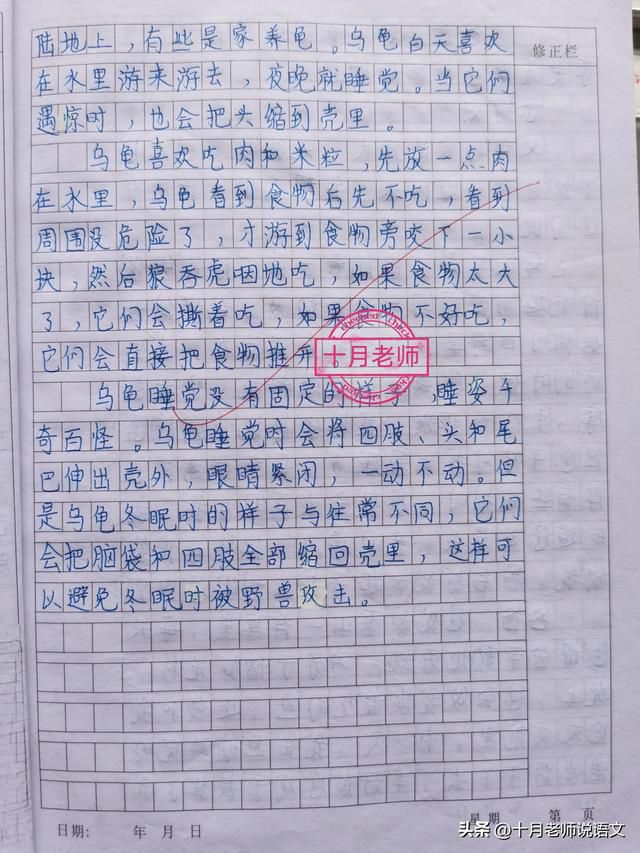 陆地上，有些是家养龟。乌龟白天喜欢
修正栏
在水里游来游去，夜晚就睡觉。当它们
遇惊时，也会把头缩到壳里。
乌龟喜欢吃肉和米粒，先放一点肉
在水里，乌龟看到食物后先不吃，看到
周围没危险了，才游到食物旁咬下一小
块，然后狼吞虎咽地吃，如果食物太大
了，它们会撕着吃，如果食物不好吃，
它们会直接把食物推开
十月老师
乌龟睡觉没有固定的样子，睡姿千
奇百怪。乌龟睡觉时会将四肢、头和尾
巴伸出壳外，眼睛紧闭，一动不动。但
是乌龟冬眠时的样子与往常不同，它们
会把脑袋和四肢全部缩回壳里，这样可
以避免冬眠时被野兽攻击。
日期： 年 月 日
星期 第 页
头条@十月老师说语文